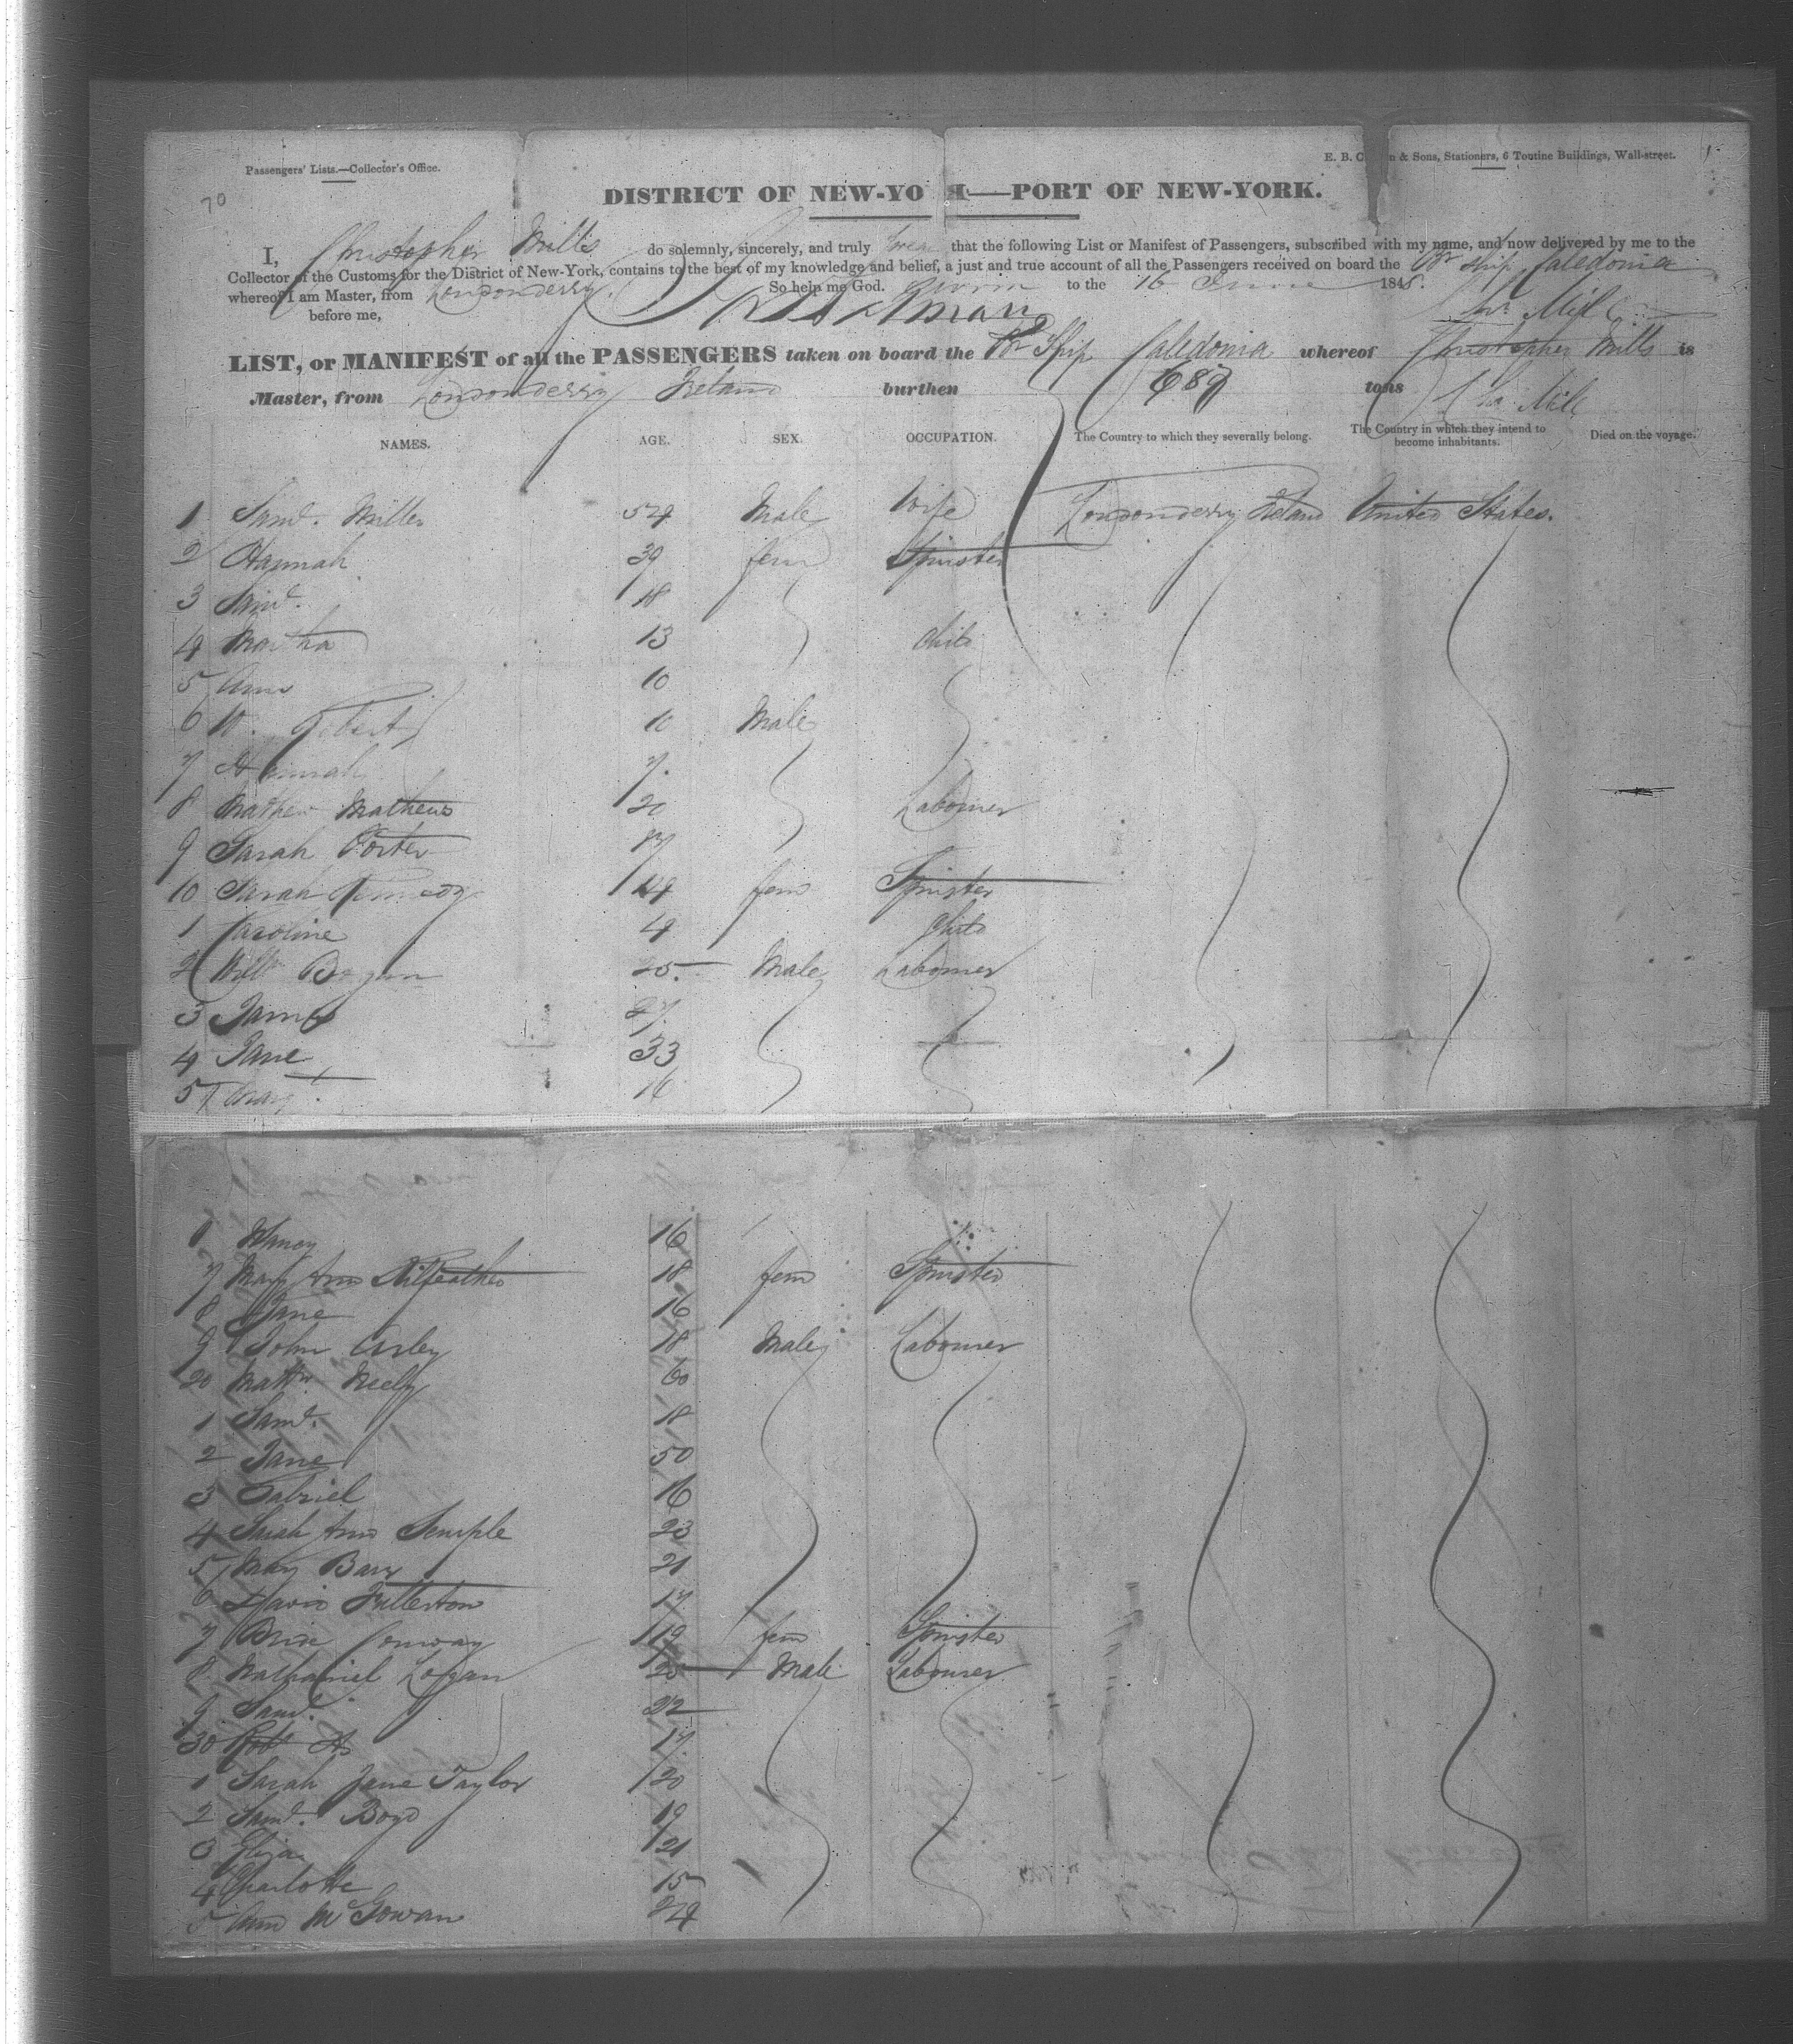 Passengers' Lists.—Collector's Office.
E. B. & Sons, Stationers, 6 Tontine Buildings, Wall-street.
70
DISTRICT OF NEW-YO R—PORT OF NEW-YORK.
I, Christopher Mills do solemnly, sincerely, and truly swear that the following List or Manifest of Passengers, subscribed with my name, and now delivered by me to the
Collector of the Customs for the District of New-York, contains to the best of my knowledge and belief, a just and true account of all the Passengers received on board the Br Ship Caledonia
whereof I am Master, from Londonderry. So help me God. Sworn to the 16 June 1845.
before me,
LIST, or MANIFEST of all the PASSENGERS taken on board the Br Ship Caledonia whereof Christopher Mills is
Master, from Londonderry Ireland burthen 689 tons
NAMES. AGE. SEX. OCCUPATION. The Country to which they severally belong. The Country in which they intend to become inhabitants. Died on the voyage.
1 Saml. Miller 54 Male Wife Londonderry Ireland United States.
2 Hannah 39 fem Spinster
3 Saml. 18
4 Martha 13 Child
5 Ann 10
6 W. Robert 10 Male
7 Hannah 7.
8 Mathew Mathews 20 Labourer
9 Sarah Porter
10 Sarah 44 fem Spinster
1 Caroline 4 Child
2 Willm 25. Male Labourer
3 James 27.
4 Jane 33
5 Mary 16
6 Nancy 16
7 Mary Ann Kilfeather 18 fem Spinster
8 Jane 16
9 John 18 Male Labourer
20 Mattw Neely 60
1 Saml. 18
2 Jane 50
3 Gabriel 16
4 Sarah Ann Semple 23
5 Mary Barr 21
6 David Fullerton 17.
7 Bride Conway 19 fem Spinster
8 Nathaniel Logan 25 Male Labourer
9 Saml. 22
30 Robt 17.
1 Sarah Jane Taylor 20
2 Saml. Boyd 19
3 Eliza 21
4 Charlotte 15
5 Ann McGowan 24